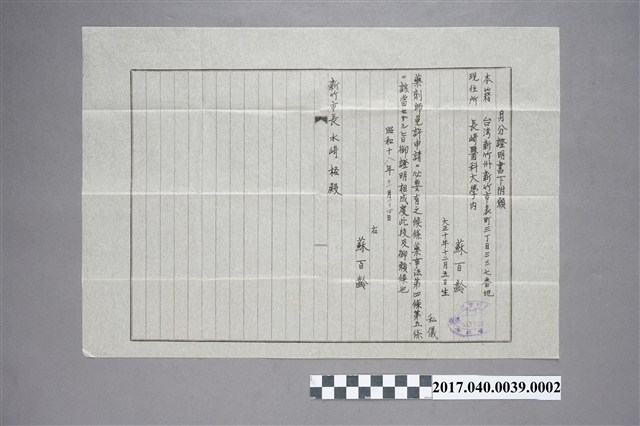 身分證明書下附願
本籍 台湾新竹州新竹市表町三丁目三三七番地
現住所 長崎醫科大學内
蘇百齡
大正十年十二月五日生
私儀
藥劑師免許申請ニ必要有之候條藥事法第四條第五條
ニ該當セサル旨御證明相成度此段及御願候也
昭和十八年 月 日
右
蘇百齡
新竹市長 永崎 殿
2017.040.0039.0002